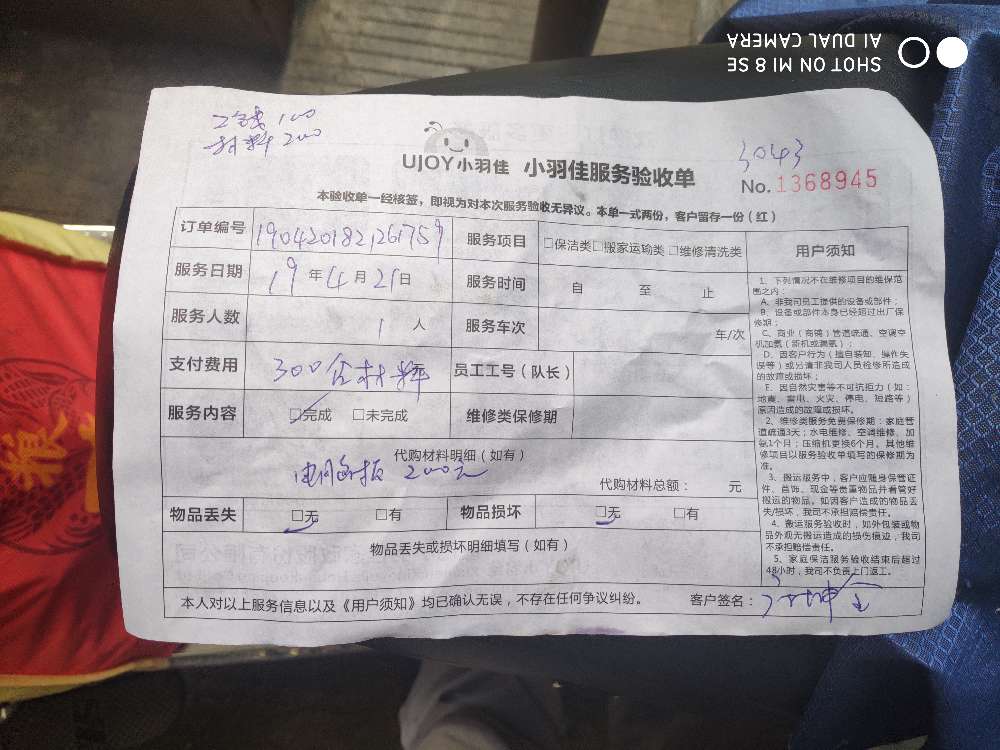 SHOT ON MI 8 SE
AI DUAL CAMERA
工钱 100
材料 200
3043
UJOY小羽佳 小羽佳服务验收单
No. 1368945
本验收单一经核签，即视为对本次服务验收无异议。本单一式两份，客户留存一份（红）
订单编号 190420182126175 服务项目 □保洁类□搬家运输类□维修清洗类 用户须知
服务日期 19年4月21日 服务时间 自 至 止
服务人数 1人 服务车次 车/次
支付费用 300含材料 员工工号（队长）
服务内容 □完成 □未完成 维修类保修期
代购材料明细（如有）
电脑板 200元
代购材料总额： 元
物品丢失 □无 □有 物品损坏 □无 □有
物品丢失或损坏明细填写（如有）
本人对以上服务信息以及《用户须知》均已确认无误，不存在任何争议纠纷。 客户签名：
1、下列情况不在维修项目的维保范
围之内：
A、非我司员工提供的设备或部件；
B、设备或部件本身已经超过出厂保
修期；
C、商业（商铺）管道疏通、空调空
机加氨（新机或漏氨）；
D、因客户行为（擅自装卸、操作失
误等）或出请非我司人员检修所造成
的故障或损坏；
E、因自然灾害等不可抗拒力（如：
地震、雷电、火灾、停电、短路等）
原因造成的故障或损坏。
2、维修类服务免费保修期：家庭管
道疏通3天；水电维修、空调维修、加
氨1个月；压缩机更换6个月。其他维
修项目以服务验收单填写的保修期为
准。
3、搬运服务中，客户应随身保管证
件、首饰、现金等贵重物品并看管好
搬运的物品。如因客户造成的物品丢
失/损坏，我司不承担赔偿责任。
4、搬运服务验收时，如外包装或物
品外观无搬运造成的损伤痕迹，我司
不承担赔偿责任。
5、家庭保洁服务验收结束后超过
48小时，我司不负责上门返工。
粮